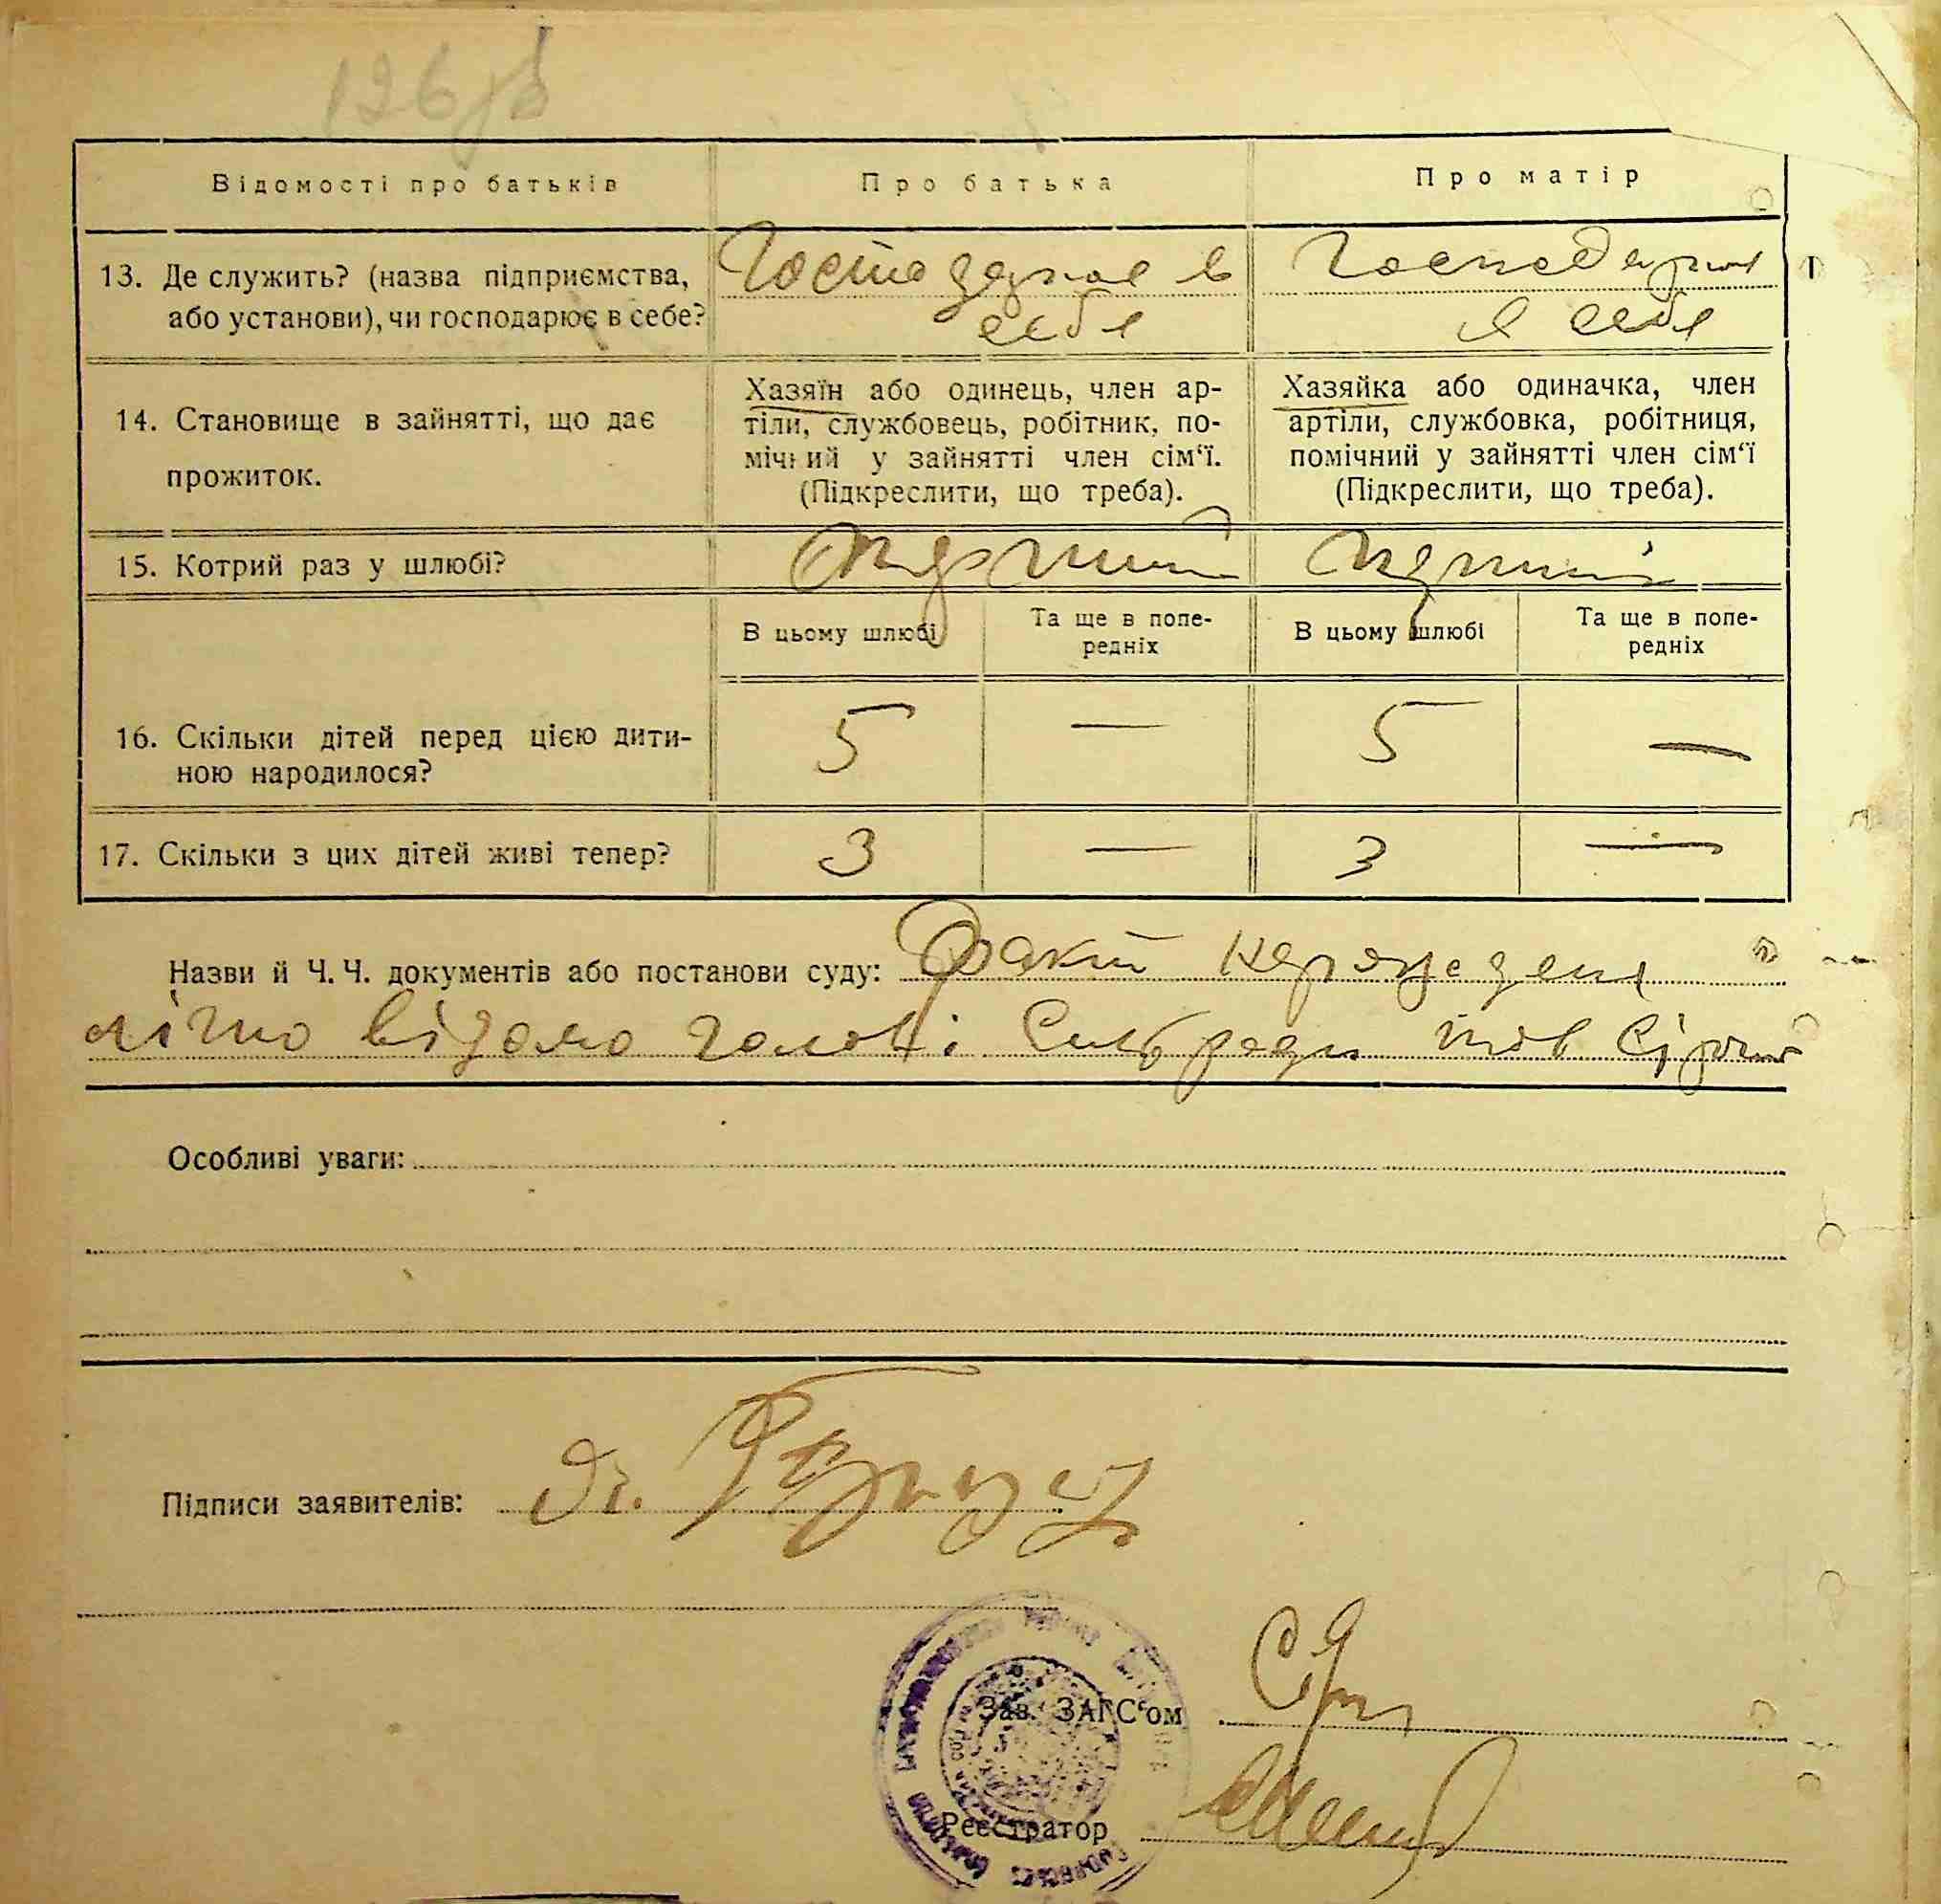 126 зв
Відомості про батьків
Про батька
Про матір
13. Де служить? (назва підприємства,
або установи), чи господарює в себе?
в
себе
Господарює
в себе
14. Становище в зайнятті, що дає
прожиток.
Хазяїн або одинець, член ар-
тіли, службовець, робітник, по-
мічний у зайнятті член сім‘ї.
(Підкреслити, що треба).
Хазяйка або одиначка, член
артіли, службовка, робітниця,
помічний у зайнятті член сім‘ї
(Підкреслити, що треба).
15. Котрий раз у шлюбі?
В цьому шлюбі
Та ще в попе-
редніх
В цьому шлюбі
Та ще в попе-
редніх
16. Скільки дітей перед цією дити-
ною народилося?
5 — 5 —
17. Скільки з цих дітей живі тепер?
3 — 3 —
Назви й Ч. Ч. документів або постанови суду: Факт
відомо голові Сільради тов
Особливі уваги:
Підписи заявителів:
Зав. ЗАГС‘ом
Реєстратор